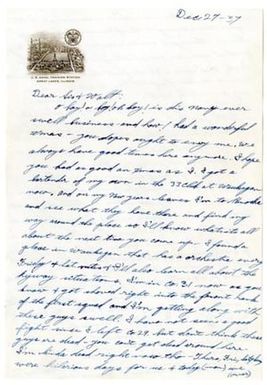 Dec 27-37
U.S. NAVAL TRAINING STATION
GREAT LAKES, ILLINOIS
Dear Sis & Walt:
O boy! oh boy! is this Navy ever
swell business and how I had a wonderful
Xmas - you dopes ought to envy me. We
always have good times here anymore. I hope
you had as good an Xmas as I. I got a
of my own in the at Waukegan
now, and on my New Years leave I'm to
and see what they have there and find my
way around the place so I'll know what its all
about the next time you come up. I found a
place in Waukegan that has a orchestra every
Friday & Sat nites & I'll also learn all about the
hiway situations. I'm in Co. 21 now as you
know & got shoved right into the front rank
of the first squad and I'm getting along with
these guys swell. I haven't seen a good
fight since I left Co 28 but don't think these
guys are dead - you can't get dead around here.
I'm kinda dead right now tho -
were days for us & today